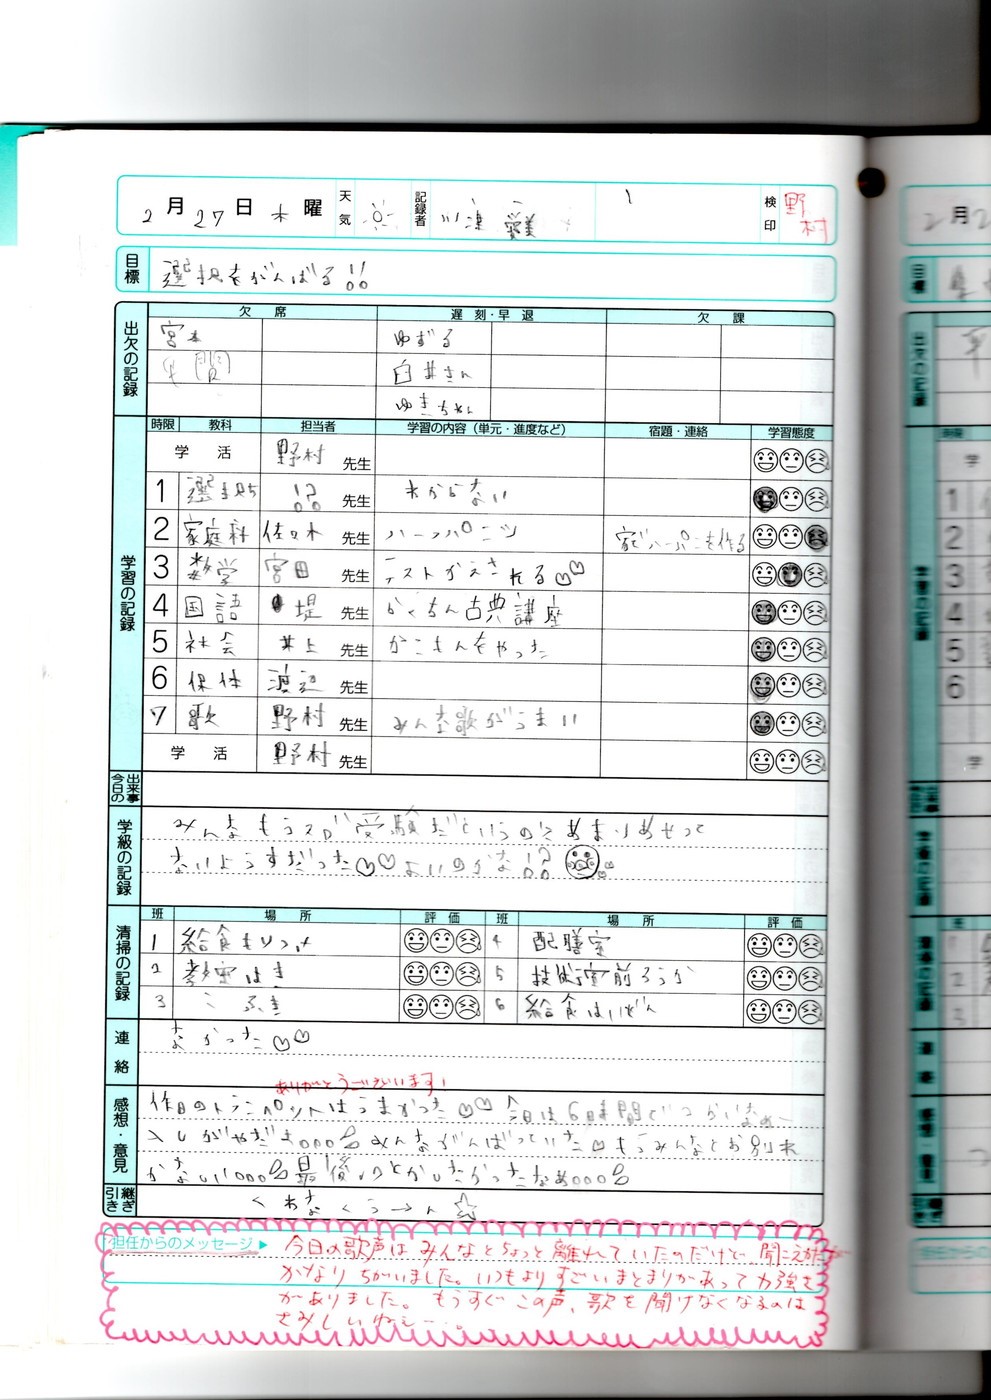 2月27日 木曜 天気 記録者 川津 愛美 検印 野村
目標 選択をがんばる!!
出欠の記録 欠席 遅刻・早退 欠課
宮本 ゆずる
白井さん
ゆきちゃん
学習の記録 時限 教科 担当者 学習の内容(単元・進度など) 宿題・連絡 学習態度
学活 野村 先生
1 選択 !? 先生 わからない
2 家庭科 佐々木 先生 ハーフパンツ
3 数学 宮田 先生 テストがえされる♡♡
4 国語 堤 先生 古典講座
5 社会 井上 先生 かこもんをやった
6 保体 渡辺 先生
7 歌 野村 先生 みんな歌がうまい
学活 野村 先生
今日の出来事
学級の記録 みんなもうスグ受験だというのにあまりあせって
ないようすだった♡♡よいのかな!?
清掃の記録 班 場所 評価 班 場所 評価
1 給食もりつけ 4 配膳室
2 教室はき 5 技術室前ろうか
3 ふき 6 給食はいぜん
連絡 なかった♡♡
ありがとうございます!
感想・意見 昨日のトランペットはうまかった♡♡今日は6時間で
みんながんばっていた♡もうみんなとお別れ
かなしい!。。。 最後
引き継ぎ くわなくぅ→ん☆
担任からのメッセージ▶ 今日の歌声はみんなとちょっと離れていたのだけど、聞こえかたが
かなりちがいました。いつもよりすごいまとまりがあって力強さ
がありました。もうすぐこの声、歌を聞けなくなるのは
さみしいねぇー…。
2月2
目標
出欠の記録
学
1
2
3
4
5
6
学